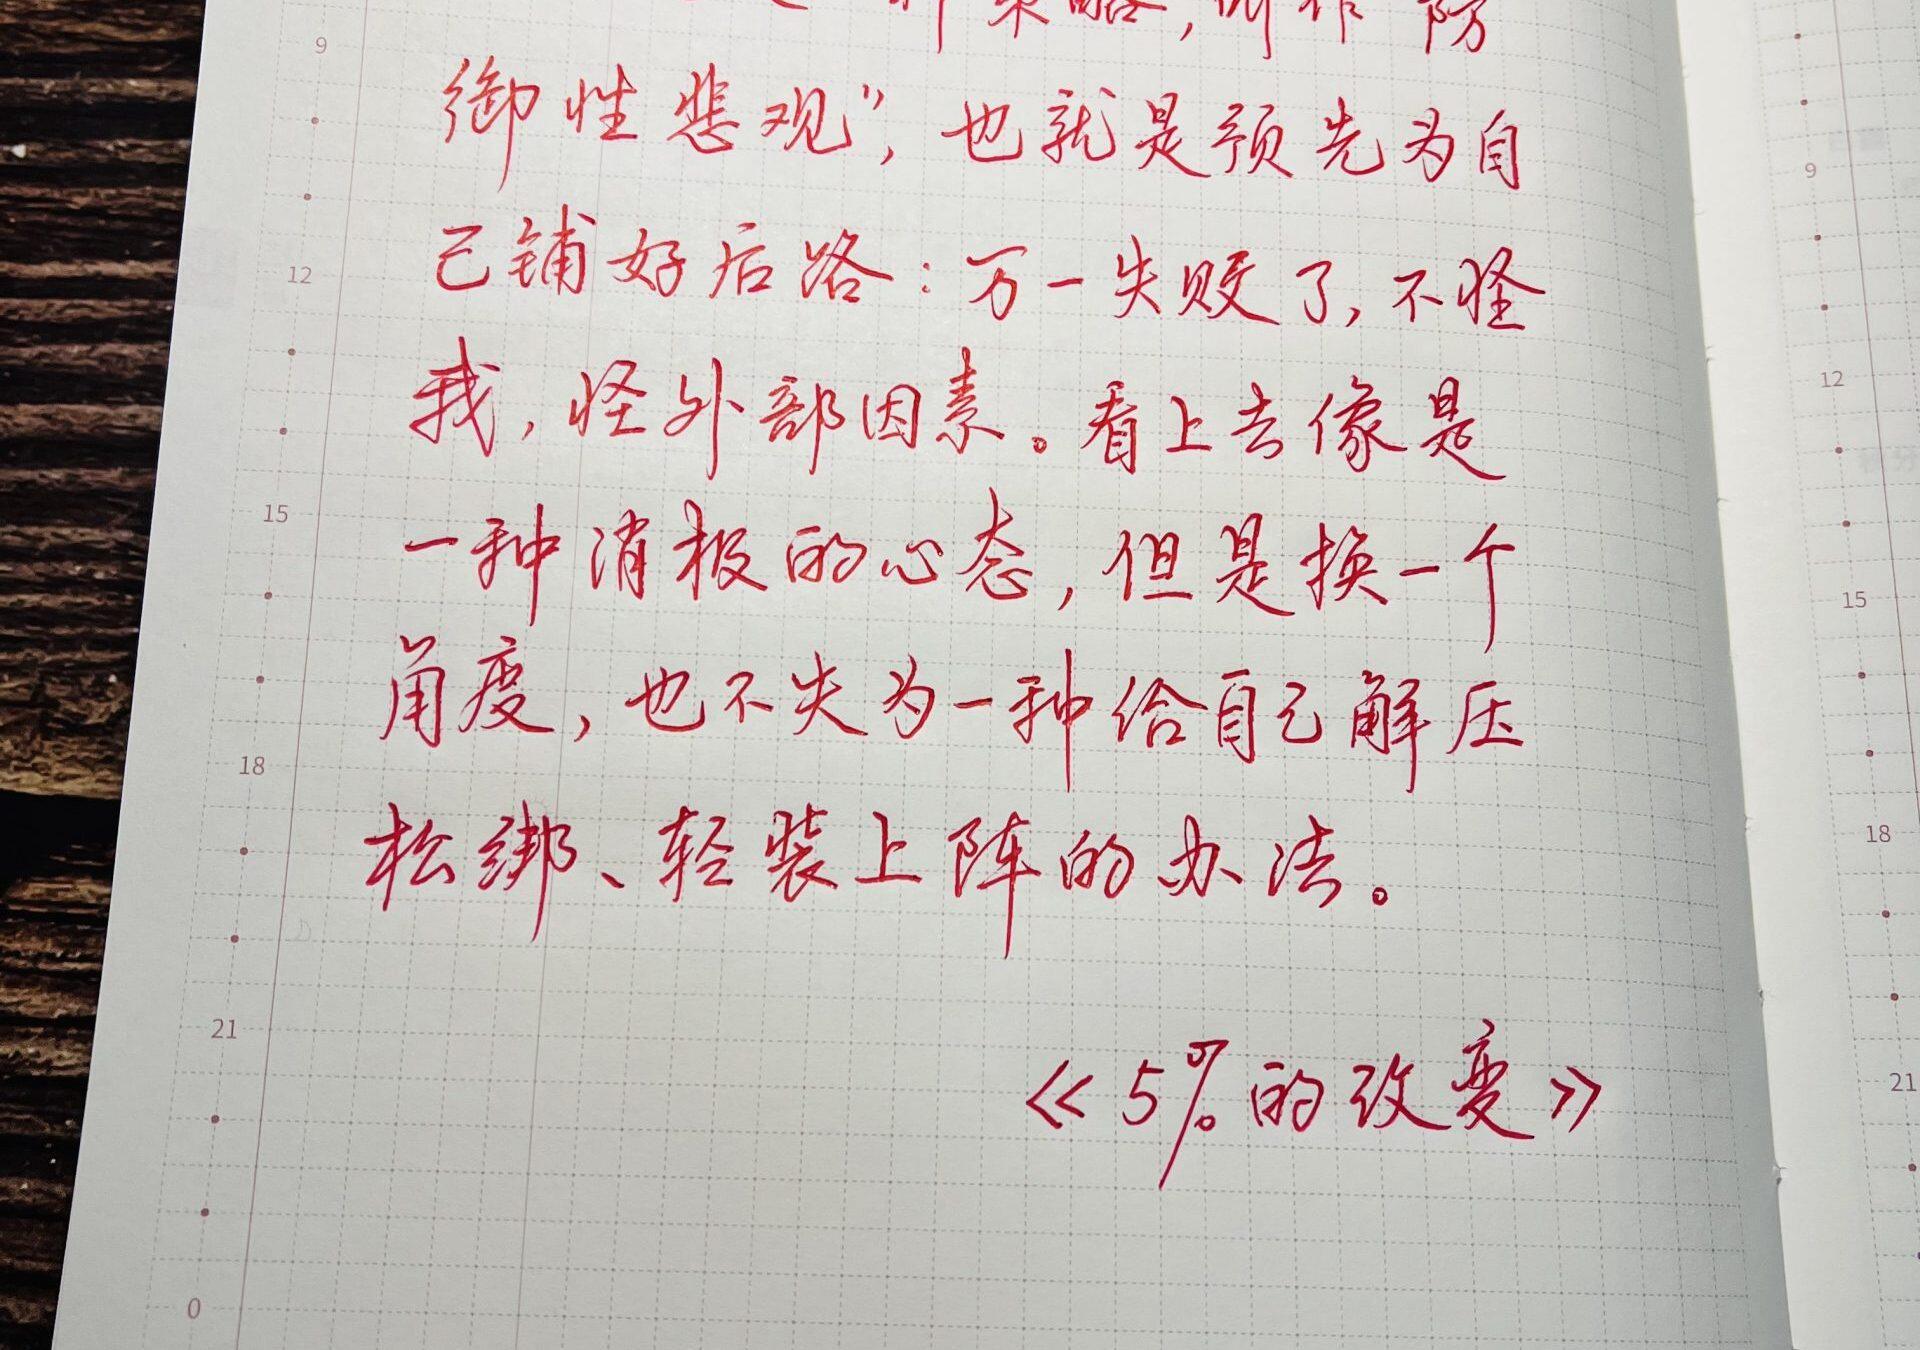 种策略，叫作“防
御性悲观”，也就是预先为自
己铺好后路：万一失败了，不怪
我，怪外部因素。看上去像是
一种消极的心态，但是换一个
角度，也不失为一种给自己解压
松绑、轻装上阵的办法。
《5%的改变》
9
12
15
18
21
0
9
12
15
18
21